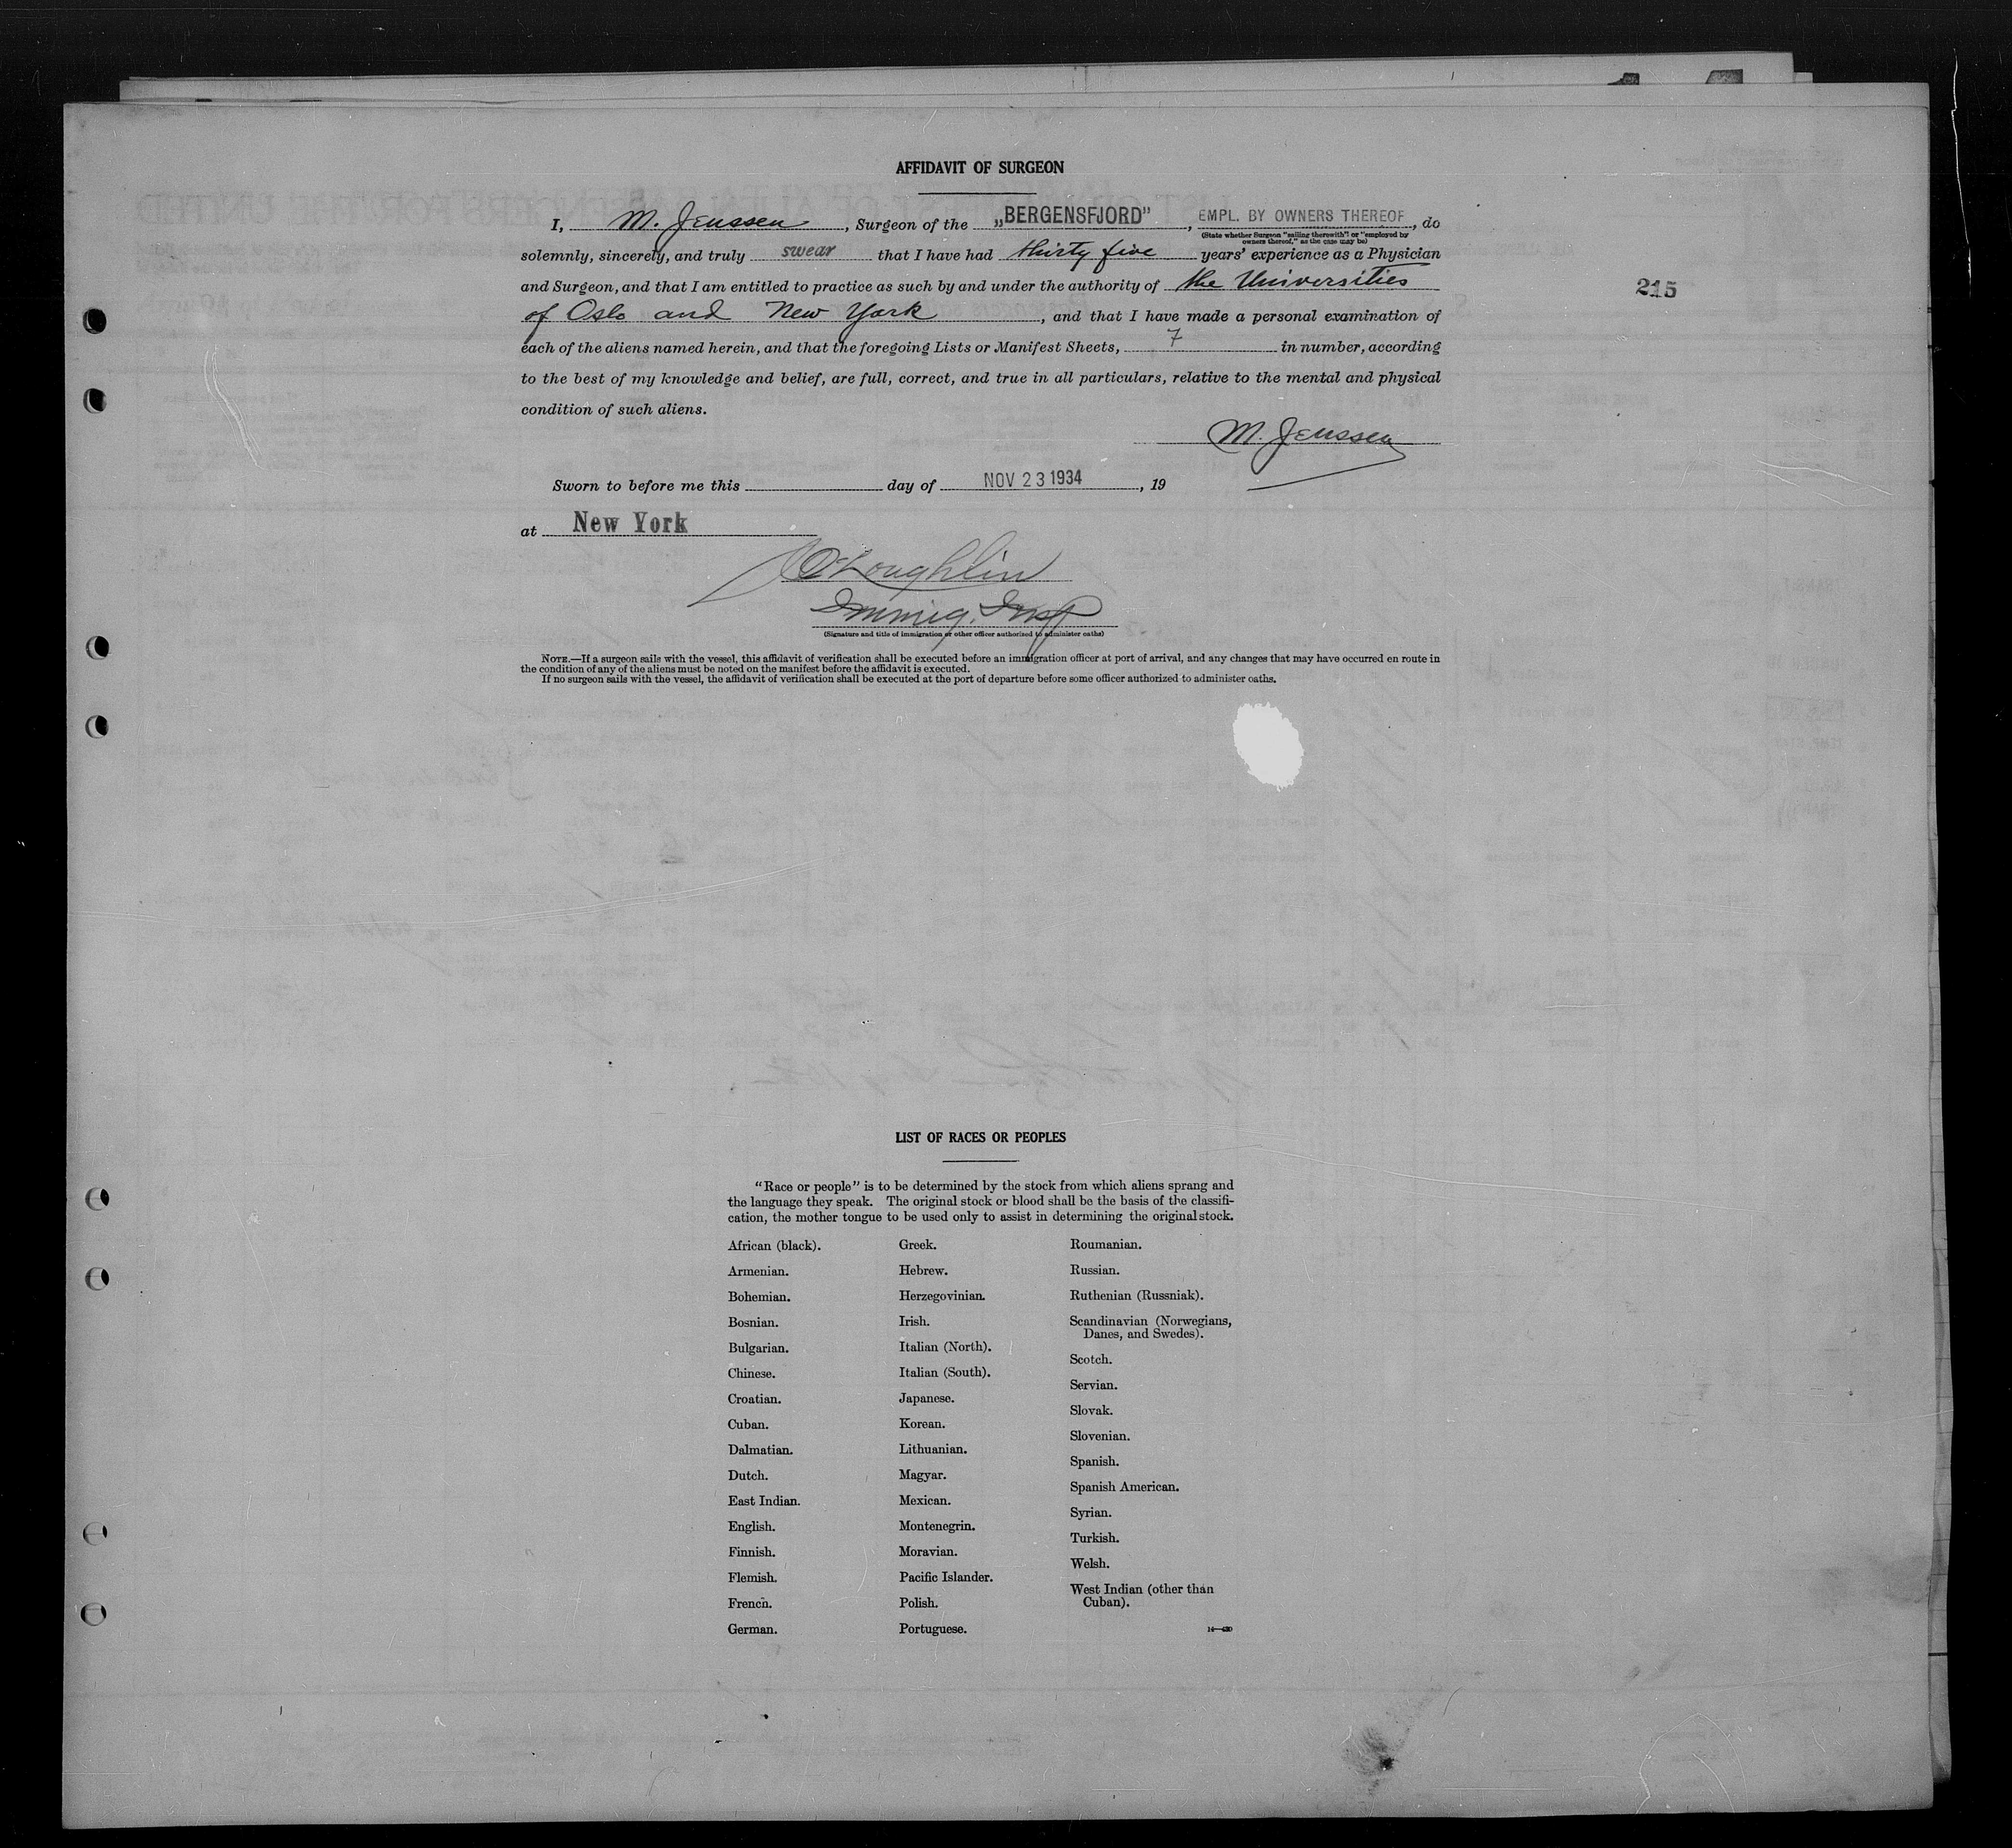 AFFIDAVIT OF SURGEON
I, M. Jenssen, Surgeon of the „BERGENSFJORD”, EMPL. BY OWNERS THEREOF, do
(State whether Surgeon "sailing therewith" or "employed by
owners thereof," as the case may be)
solemnly, sincerely, and truly swear that I have had thirty five years' experience as a Physician
and Surgeon, and that I am entitled to practice as such by and under the authority of the Universities
215
of Oslo and New York, and that I have made a personal examination of
each of the aliens named herein, and that the foregoing Lists or Manifest Sheets, 7 in number, according
to the best of my knowledge and belief, are full, correct, and true in all particulars, relative to the mental and physical
condition of such aliens.
M. Jenssen
Sworn to before me this day of NOV 23 1934, 19
at New York
O'Loughlin
Immig. Insp
(Signature and title of immigration or other officer authorized to administer oaths)
NOTE.—If a surgeon sails with the vessel, this affidavit of verification shall be executed before an immigration officer at port of arrival, and any changes that may have occurred en route in
the condition of any of the aliens must be noted on the manifest before the affidavit is executed.
If no surgeon sails with the vessel, the affidavit of verification shall be executed at the port of departure before some officer authorized to administer oaths.
LIST OF RACES OR PEOPLES
"Race or people" is to be determined by the stock from which aliens sprang and
the language they speak. The original stock or blood shall be the basis of the classifi-
cation, the mother tongue to be used only to assist in determining the original stock.
African (black).
Armenian.
Bohemian.
Bosnian.
Bulgarian.
Chinese.
Croatian.
Cuban.
Dalmatian.
Dutch.
East Indian.
English.
Finnish.
Flemish.
French.
German.
Greek.
Hebrew.
Herzegovinian.
Irish.
Italian (North).
Italian (South).
Japanese.
Korean.
Lithuanian.
Magyar.
Mexican.
Montenegrin.
Moravian.
Pacific Islander.
Polish.
Portuguese.
Roumanian.
Russian.
Ruthenian (Russniak).
Scandinavian (Norwegians,
Danes, and Swedes).
Scotch.
Servian.
Slovak.
Slovenian.
Spanish.
Spanish American.
Syrian.
Turkish.
Welsh.
West Indian (other than
Cuban).